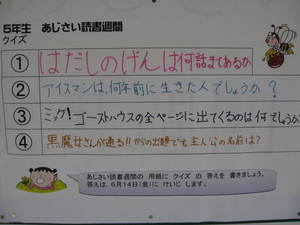 5年生　あじさい読書週間
クイズ
① はだしのげんは何話まであるか
② アイスマンは、何年前に生きた人でしょうか？
③ ミッケ!ゴーストハウスの全ページに出てくるのは何でしょうか
④ 黒魔女さんが通る!!からの出題です主人公の名前は?
あじさい読書週間の 用紙に クイズ の 答えを 書きましょう。
答えは、6月14日(金)に けいじ します。